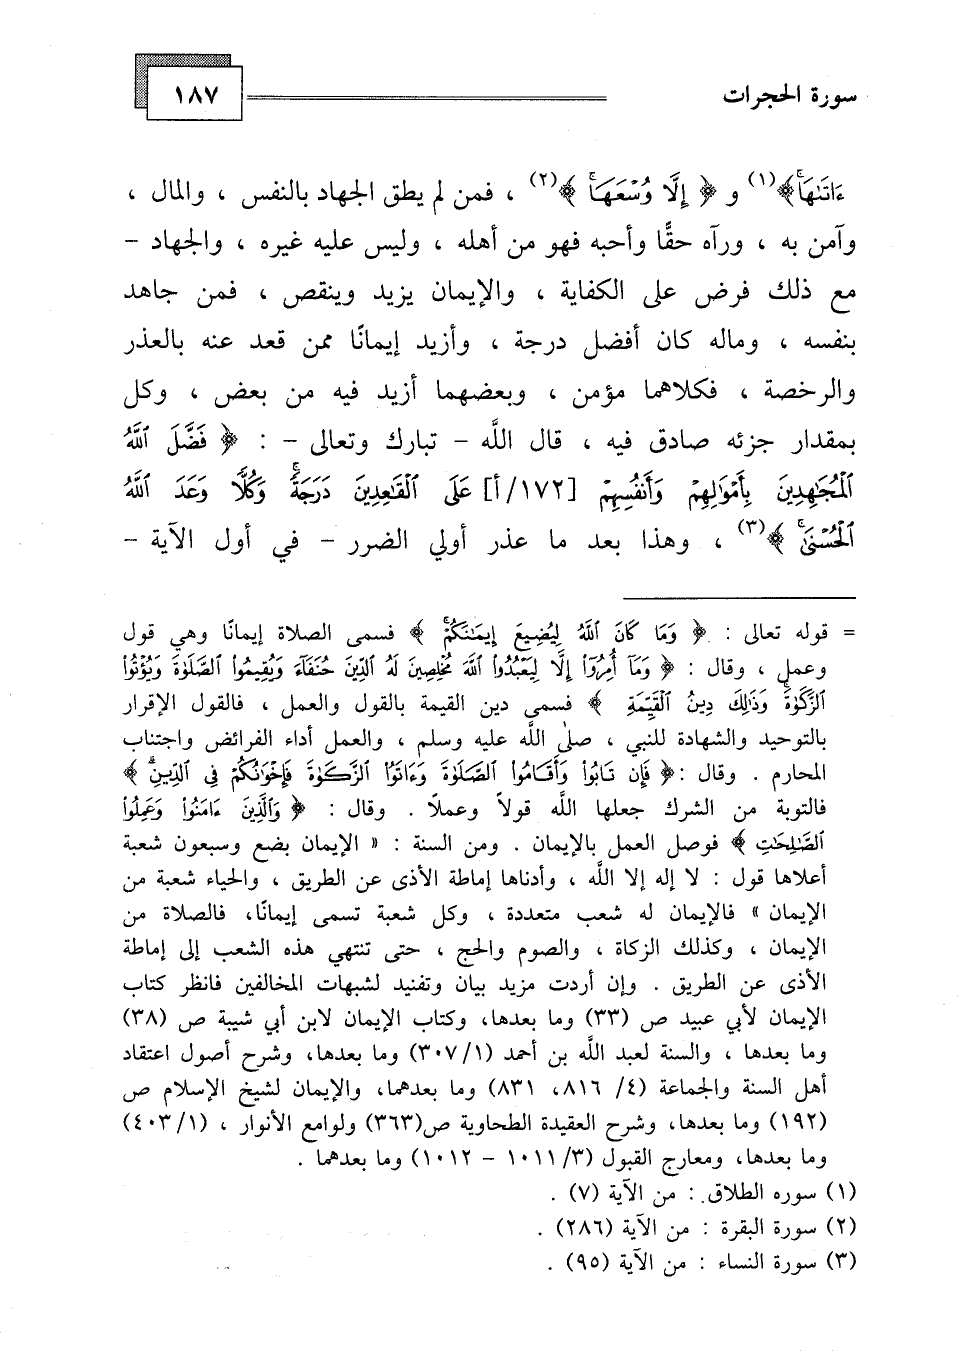 سورة الحجرات
١٨٧
ءَاتَىٰهَا ﴾(١) و ﴿ إِلَّا وُسْعَهَا ﴾(٢) ، فمن لم يطق الجهاد بالنفس ، والمال ،
وآمن به ، ورآه حقًّا وأحبه فهو من أهله ، وليس عليه غيره ، والجهاد –
مع ذلك فرض على الكفاية ، والإيمان يزيد وينقص ، فمن جاهد
بنفسه ، وماله كان أفضل درجة ، وأزيد إيمانًا ممن قعد عنه بالعذر
والرخصة ، فكلاهما مؤمن ، وبعضهما أزيد فيه من بعض ، وكل
بمقدار جزئه صادق فيه ، قال اللَّه – تبارك وتعالى – : ﴿ فَضَّلَ ٱللَّهُ
ٱلْمُجَٰهِدِينَ بِأَمْوَٰلِهِمْ وَأَنفُسِهِمْ [١٧٢/أ] عَلَى ٱلْقَٰعِدِينَ دَرَجَةً وَكُلًّا وَعَدَ ٱللَّهُ
ٱلْحُسْنَىٰ ﴾(٣) ، وهذا بعد ما عذر أولي الضرر – في أول الآية –
= قوله تعالى : ﴿ وَمَا كَانَ ٱللَّهُ لِيُضِيعَ إِيمَٰنَكُمْ ﴾ فسمى الصلاة إيمانًا وهي قول
وعمل ، وقال : ﴿ وَمَآ أُمِرُوٓا۟ إِلَّا لِيَعْبُدُوا۟ ٱللَّهَ مُخْلِصِينَ لَهُ ٱلدِّينَ حُنَفَآءَ وَيُقِيمُوا۟ ٱلصَّلَوٰةَ وَيُؤْتُوا۟
ٱلزَّكَوٰةَ وَذَٰلِكَ دِينُ ٱلْقَيِّمَةِ ﴾ فسمى دين القيمة بالقول والعمل ، فالقول الإقرار
بالتوحيد والشهادة للنبي ، صلى اللَّه عليه وسلم ، والعمل أداء الفرائض واجتناب
المحارم . وقال : ﴿ فَإِن تَابُوا۟ وَأَقَامُوا۟ ٱلصَّلَوٰةَ وَءَاتَوُا۟ ٱلزَّكَوٰةَ فَإِخْوَٰنُكُمْ فِى ٱلدِّينِ ﴾
فالتوبة من الشرك جعلها اللَّه قولاً وعملاً . وقال : ﴿ وَٱلَّذِينَ ءَامَنُوا۟ وَعَمِلُوا۟
ٱلصَّٰلِحَٰتِ ﴾ فوصل العمل بالإيمان . ومن السنة : « الإيمان بضع وسبعون شعبة
أعلاها قول : لا إله إلا اللَّه ، وأدناها إماطة الأذى عن الطريق ، والحياء شعبة من
الإيمان » فالإيمان له شعب متعددة ، وكل شعبة تسمى إيمانًا، فالصلاة من
الإيمان ، وكذلك الزكاة ، والصوم والحج ، حتى تنتهي هذه الشعب إلى إماطة
الأذى عن الطريق . وإن أردت مزيد بيان وتفنيد لشبهات المخالفين فانظر كتاب
الإيمان لأبي عبيد ص (٣٣) وما بعدها، وكتاب الإيمان لابن أبي شيبة ص (٣٨)
وما بعدها ، والسنة لعبد اللَّه بن أحمد (٣٠٧/١) وما بعدها، وشرح أصول اعتقاد
أهل السنة والجماعة (٤/ ٨١٦، ٨٣١) وما بعدهما، والإيمان لشيخ الإسلام ص
(١٩٢) وما بعدها، وشرح العقيدة الطحاوية ص(٣٦٣) ولوامع الأنوار ، (٤٠٣/١)
وما بعدها، ومعارج القبول (١٠١١/٣ – ١٠١٢) وما بعدهما .
(١) سوره الطلاق : من الآية (٧) .
(٢) سورة البقرة : من الآية (٢٨٦) .
(٣) سورة النساء : من الآية (٩٥) .